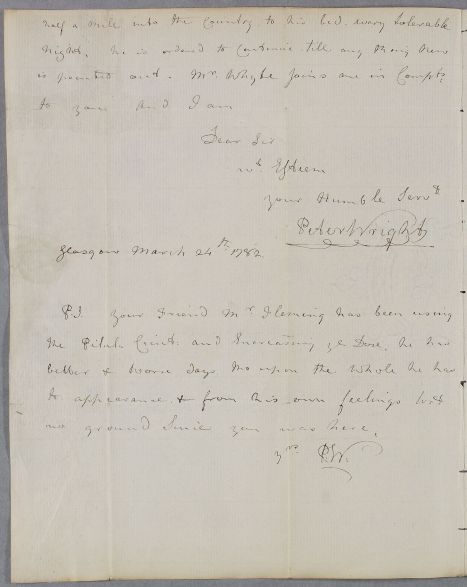 half a mile into the Country, to his bed. every tolerable
night. he is ordered to continue till any thing new
is pointed out. Mr. Whyte Joins me in Compts
to you and I am
Dear Sir
wt. Esteem
your Humble Servt
Peter Wright
Glasgow March 24th. 1782.
P.S. your Friend Mr. Fleming has been using
the Pilul. Cicut: and Increasing ye Dose, he has
better & worse days, tho upon the whole he has
to appearance & from his own feelings lost
no ground Since you was here.
yrs. P.W.